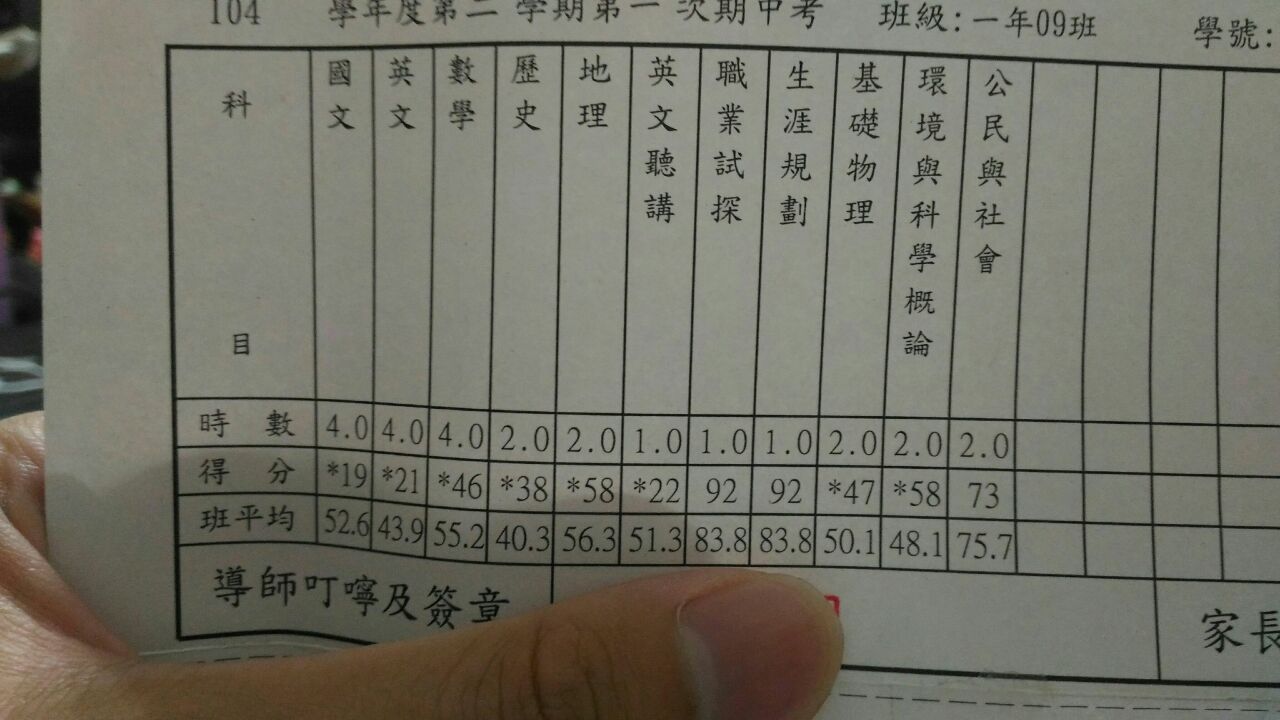 104 學年度第二 學期第一 次期中考 班級: 一年09班 學號:
科目 國文 英文 數學 歷史 地理 英文聽講 職業試探 生涯規劃 基礎物理 環境與科學概論 公民與社會
時 數 4.0 4.0 4.0 2.0 2.0 1.0 1.0 1.0 2.0 2.0 2.0
得 分 *19 *21 *46 *38 *58 *22 92 92 *47 *58 73
班平均 52.6 43.9 55.2 40.3 56.3 51.3 83.8 83.8 50.1 48.1 75.7
導師叮嚀及簽章 家長